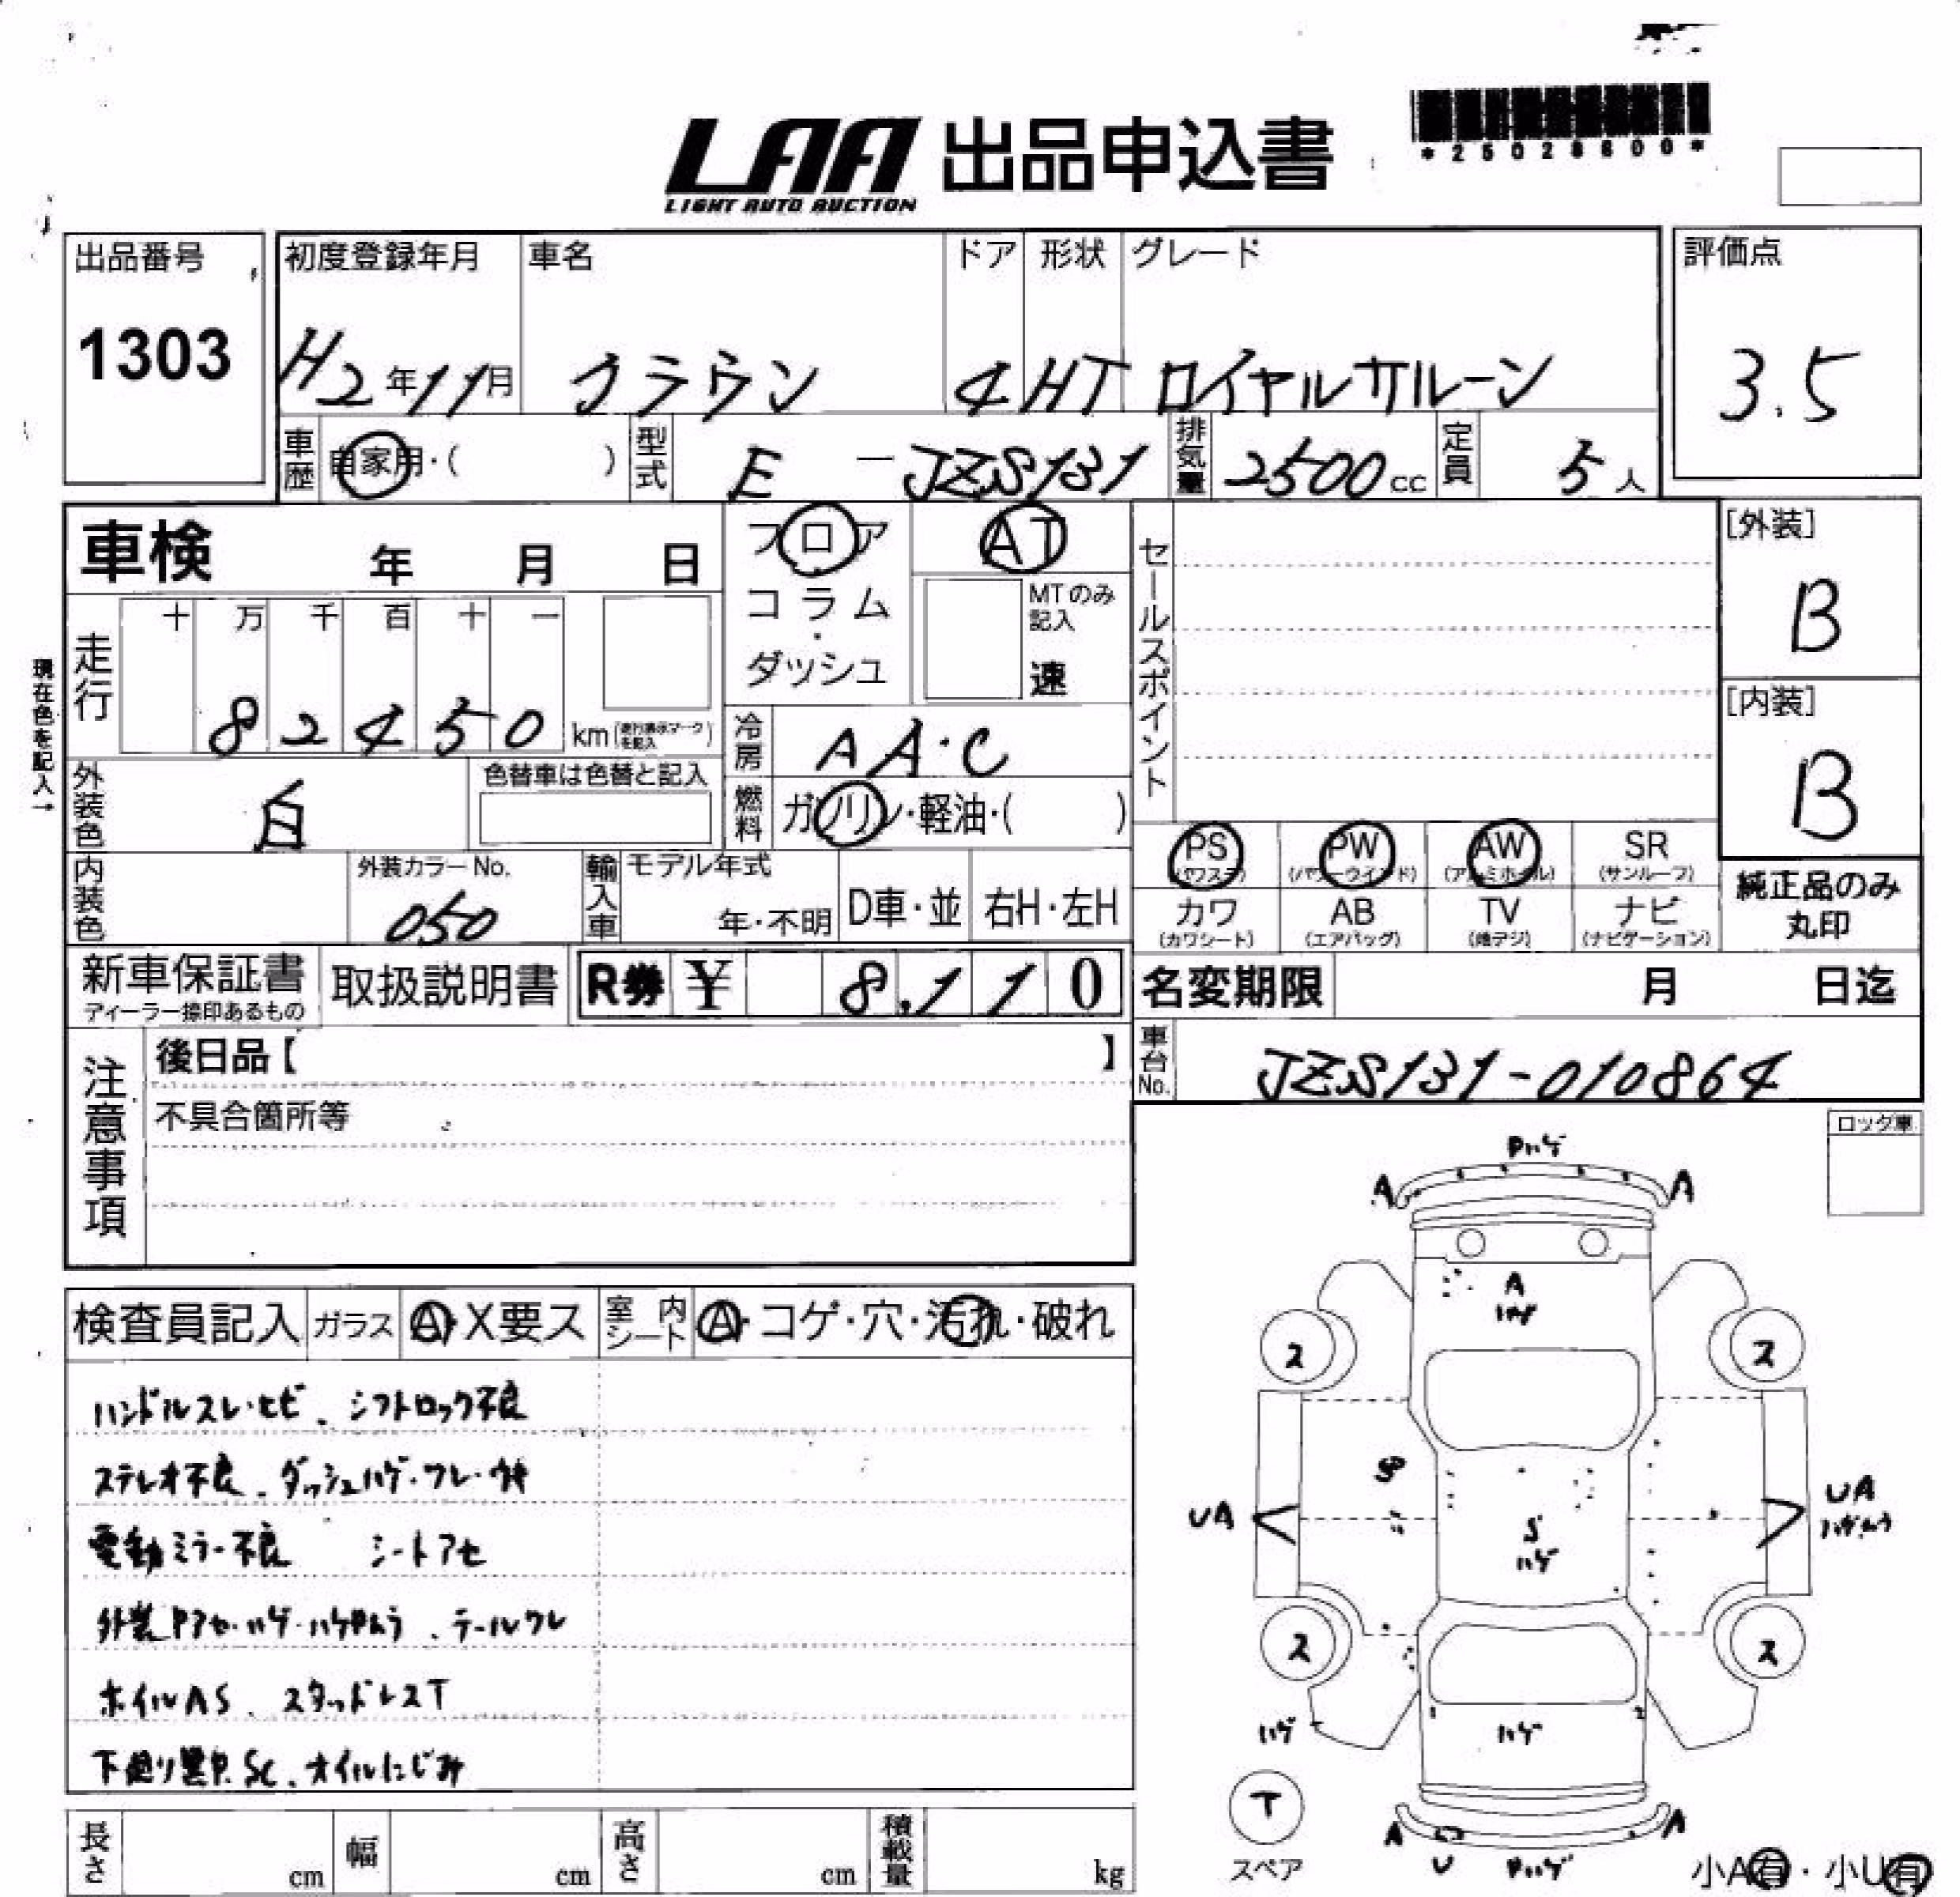 LAA 出品申込書
LIGHT AUTO AUCTION
*25028600*
出品番号 初度登録年月 車名 ドア 形状 グレード 評価点
1303 H2年11月 クラウン 4 HT ロイヤルサルーン 3.5
車歴 自家用・( ) 型式 E-JZS131 排気量 2500cc 定員 5人
車検 年 月 日 フロア AT
コラム・ MTのみ記入
ダッシュ 速
セールスポイント
[外装]
B
[内装]
B
現在色を記入→
走行 十 万 千 百 十 一
82450 km
冷房 AA・C
外装色 白 色替車は色替と記入
燃料 ガソリン・軽油・( )
内装色 外装カラーNo. 050 輸入車 モデル年式 年・不明 D車・並 右H・左H
PS PW AW SR
(パワステ) (パワーウインド) (アルミホイル) (サンルーフ)
カワ AB TV ナビ
(カワシート) (エアバッグ) (地デジ) (ナビゲーション)
純正品のみ
丸印
新車保証書 取扱説明書 R券 ¥ 8,110 名変期限 月 日迄
ディーラー捺印あるもの
車台No. JZS131-010864
注意事項
後日品【 】
不具合箇所等
ロック車
検査員記入 ガラス A・X要ス 室内シート A・コゲ・穴・汚れ・破れ
ハンドルスレ・ヒビ、シフトロック不良
ステレオ不良、ダッシュハゲ・ワレ・ウキ
電動ミラー不良 シートアセ
外装Pアセ・ハゲ・ハゲPムラ、テールワレ
ホイルAS、スタッドレスT
下廻り塗P.SC、オイルにじみ
Pハゲ
A A
A
ハゲ
ス ス
UA
S
ハゲ
UA
ス ス
ハゲ
ハゲ
T
スペア
A A
U Pハゲ
小A有・小U有
長さ cm 幅 cm 高さ cm 積載量 kg